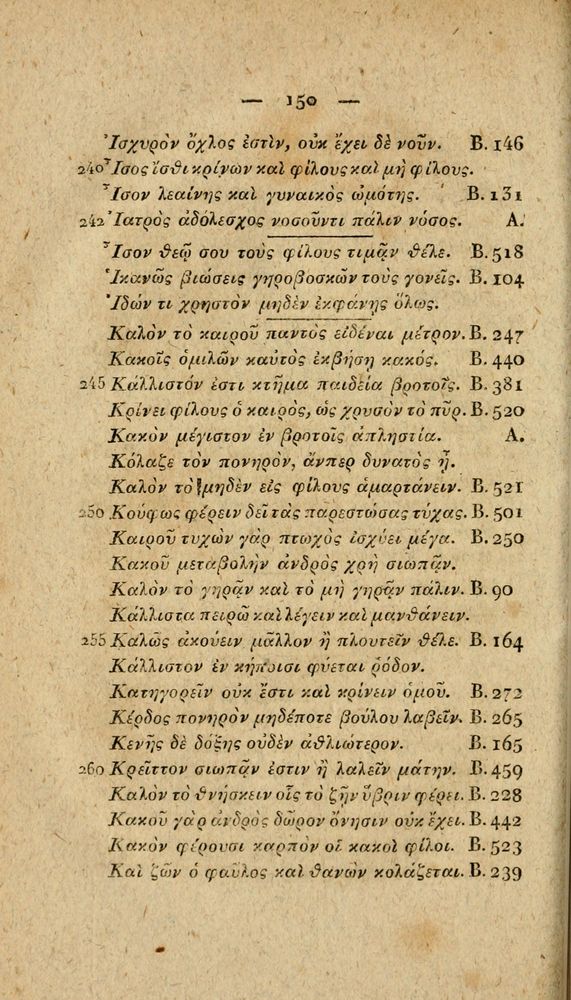 — 150 —
Ἰσχυρὸν ὄχλος ἐστὶν, οὐκ ἔχει δὲ νοῦν. B. 146
240 Ἴσος ἴσθι κρίνων καὶ φίλους καὶ μὴ φίλους.
Ἴσον λεαίνης καὶ γυναικὸς ὠμότης. B. 131
242 Ἰατρὸς ἀδόλεσχος νοσοῦντι πάλιν νόσος. A.
Ἶσον θεῷ σου τοὺς φίλους τιμᾷν θέλε. B. 518
Ἱκανῶς βιώσεις γηροβοσκῶν τοὺς γονεῖς. B. 104
Ἰδών τι χρηστὸν μηδὲν ἐκφάνῃς ὅλως.
Καλὸν τὸ καιροῦ παντὸς εἰδέναι μέτρον. B. 247
Κακοῖς ὁμιλῶν καὐτὸς ἐκβήσῃ κακός. B. 440
245 Κάλλιστόν ἐστι κτῆμα παιδεία βροτοῖς. B. 381
Κρίνει φίλους ὁ καιρὸς, ὡς χρυσὸν τὸ πῦρ. B. 520
Κακὸν μέγιστον ἐν βροτοῖς ἀπληστία. A.
Κόλαζε τὸν πονηρὸν, ἄνπερ δυνατὸς ᾖ.
Καλὸν τὸ μηδὲν εἰς φίλους ἁμαρτάνειν. B. 521
250 Κούφως φέρειν δεῖ τὰς παρεστώσας τύχας. B. 501
Καιροῦ τυχὼν γὰρ πτωχὸς ἰσχύει μέγα. B. 250
Κακοῦ μεταβολὴν ἀνδρὸς χρὴ σιωπᾷν.
Καλὸν τὸ γηρᾷν καὶ τὸ μὴ γηρᾷν πάλιν. B. 90
Κάλλιστα πειρῶ καὶ λέγειν καὶ μανθάνειν.
255 Καλῶς ἀκούειν μᾶλλον ἢ πλουτεῖν θέλε. B. 164
Κάλλιστον ἐν κήποισι φύεται ῥόδον.
Κατηγορεῖν οὐκ ἔστι καὶ κρίνειν ὁμοῦ. B. 272
Κέρδος πονηρὸν μηδέποτε βούλου λαβεῖν. B. 265
Κενῆς δὲ δόξης οὐδὲν ἀθλιώτερον. B. 165
260 Κρεῖττον σιωπᾷν ἐστιν ἢ λαλεῖν μάτην. B. 459
Καλὸν τὸ θνήσκειν οἷς τὸ ζῆν ὕβριν φέρει. B. 228
Κακοῦ γὰρ ἀνδρὸς δῶρον ὄνησιν οὐκ ἔχει. B. 442
Κακὸν φέρουσι καρπὸν οἱ κακοὶ φίλοι. B. 523
Καὶ ζῶν ὁ φαῦλος καὶ θανὼν κολάζεται. B. 239